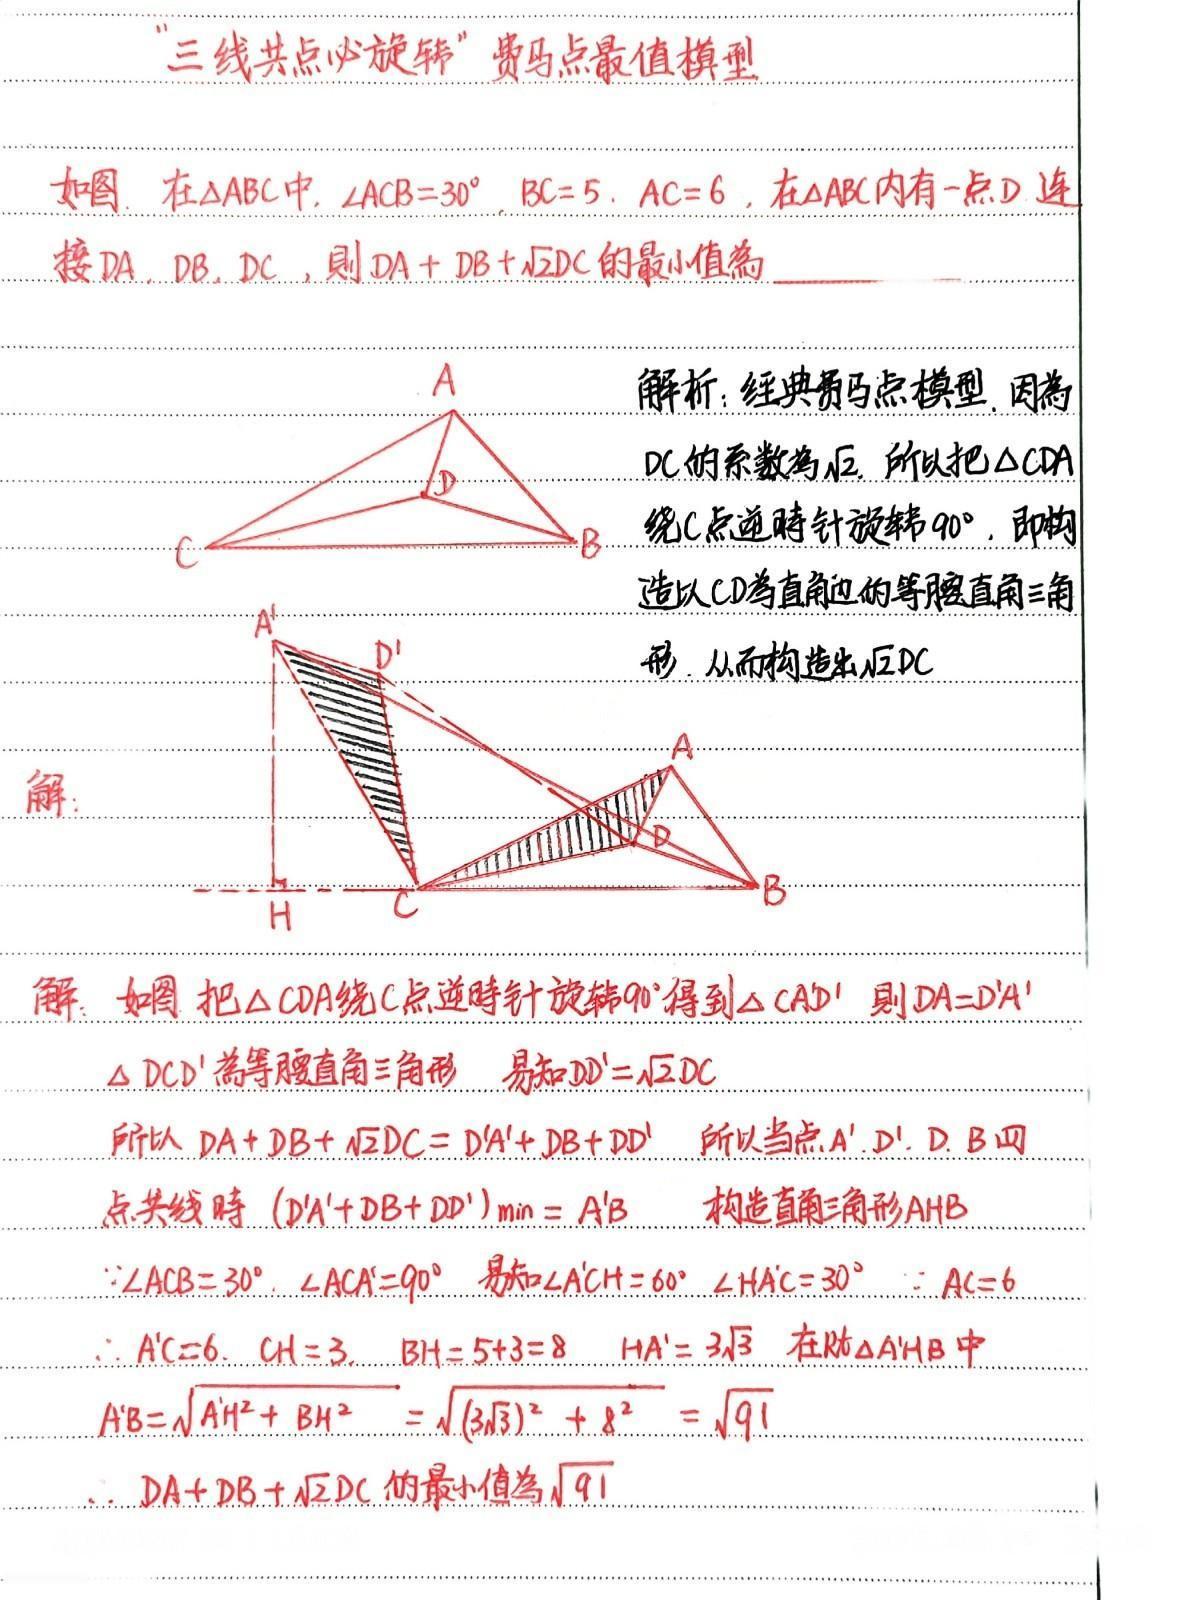 "三线共点必旋转"费马点最值模型
如图.在△ABC中.∠ACB=30°.BC=5.AC=6,在△ABC内有一点D.连
接DA.DB.DC,則DA+DB+√2DC的最小值為
A
D
C
B
解析:经典费马点模型.因為
DC的系数為√2.所以把△CDA
绕C点逆時针旋转90°.即构
造以CD為直角边的等腰直角三角
形.从而构造出√2DC
A'
D'
A
解:
D
H
C
B
解:如图.把△CDA绕C点逆時针旋转90°得到△CA'D' 則DA=D'A'
△DCD'為等腰直角三角形 易知DD'=√2DC
所以DA+DB+√2DC=D'A'+DB+DD' 所以当点A'.D'.D.B四
点共线時 (D'A'+DB+DD')min=A'B 构造直角三角形AHB
∵∠ACB=30°.∠ACA'=90° 易知∠A'CH=60° ∠HA'C=30° ∵AC=6
∴A'C=6. CH=3. BH=5+3=8 HA'=3√3 在Rt△A'HB中
A'B=√A'H²+BH² =√(3√3)²+8² =√91
∴DA+DB+√2DC的最小值為√91